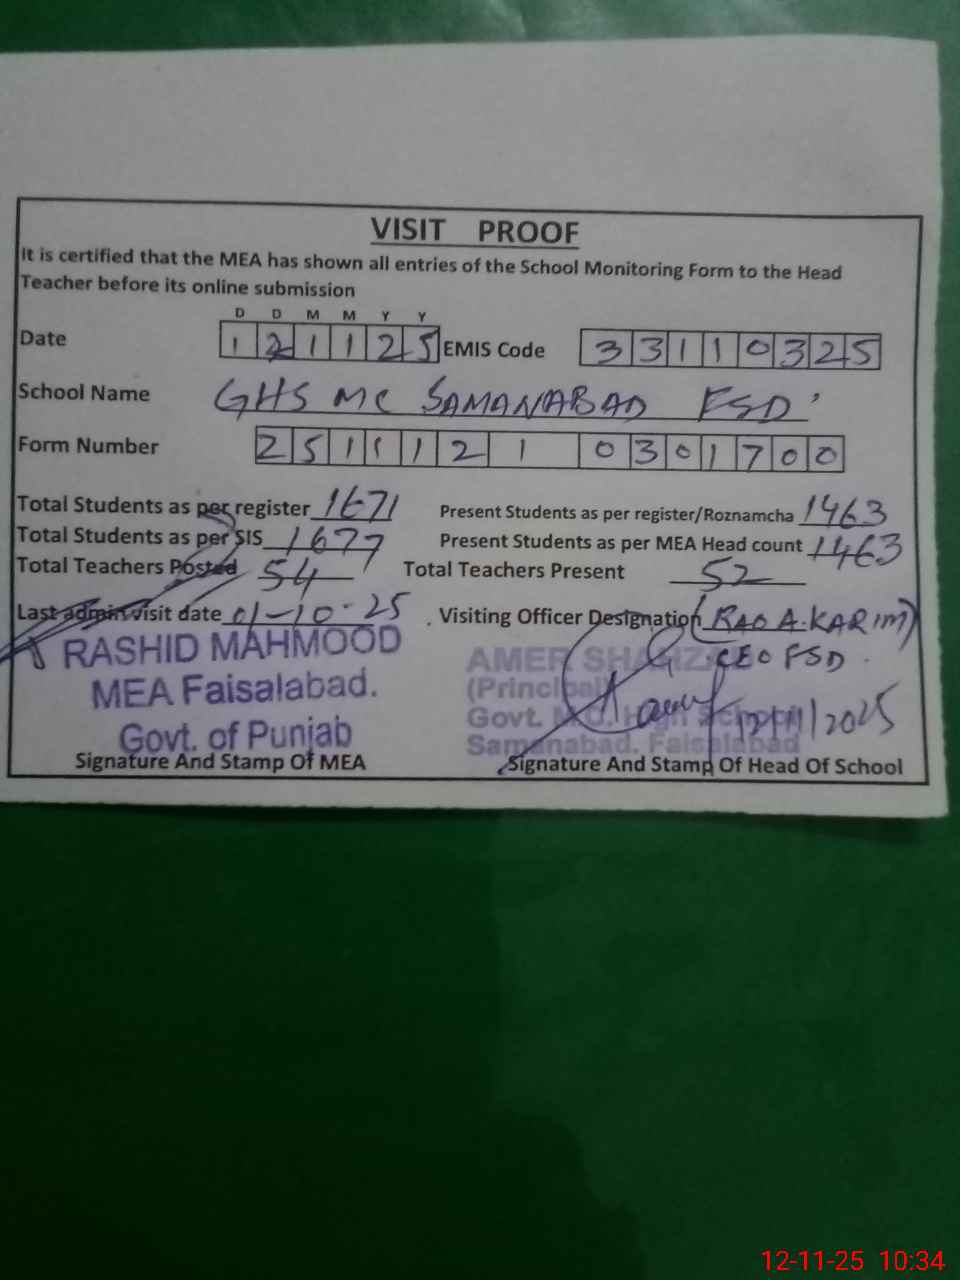 VISIT PROOF
It is certified that the MEA has shown all entries of the School Monitoring Form to the Head
Teacher before its online submission
D D M M Y Y
Date 1 2 1 1 2 5 EMIS Code 3 3 1 1 0 3 2 5
School Name GHS MC SAMANABAD FSD
Form Number 2 5 1 1 1 2 1 0 3 0 1 7 0 0
Total Students as per register 1671 Present Students as per register/Roznamcha 1463
Total Students as per SIS 1677 Present Students as per MEA Head count 1463
Total Teachers Posted 54 Total Teachers Present 52
Last admin visit date 01-10-25 Visiting Officer Designation (RAO A.KARIM)
CEO FSD
RASHID MAHMOOD
MEA Faisalabad.
Govt. of Punjab
AMER SHAHZAD
(Principal)
Govt. M.C. High School
Samanabad, Faisalabad
12/11/2025
Signature And Stamp Of MEA Signature And Stamp Of Head Of School
12-11-25 10:34